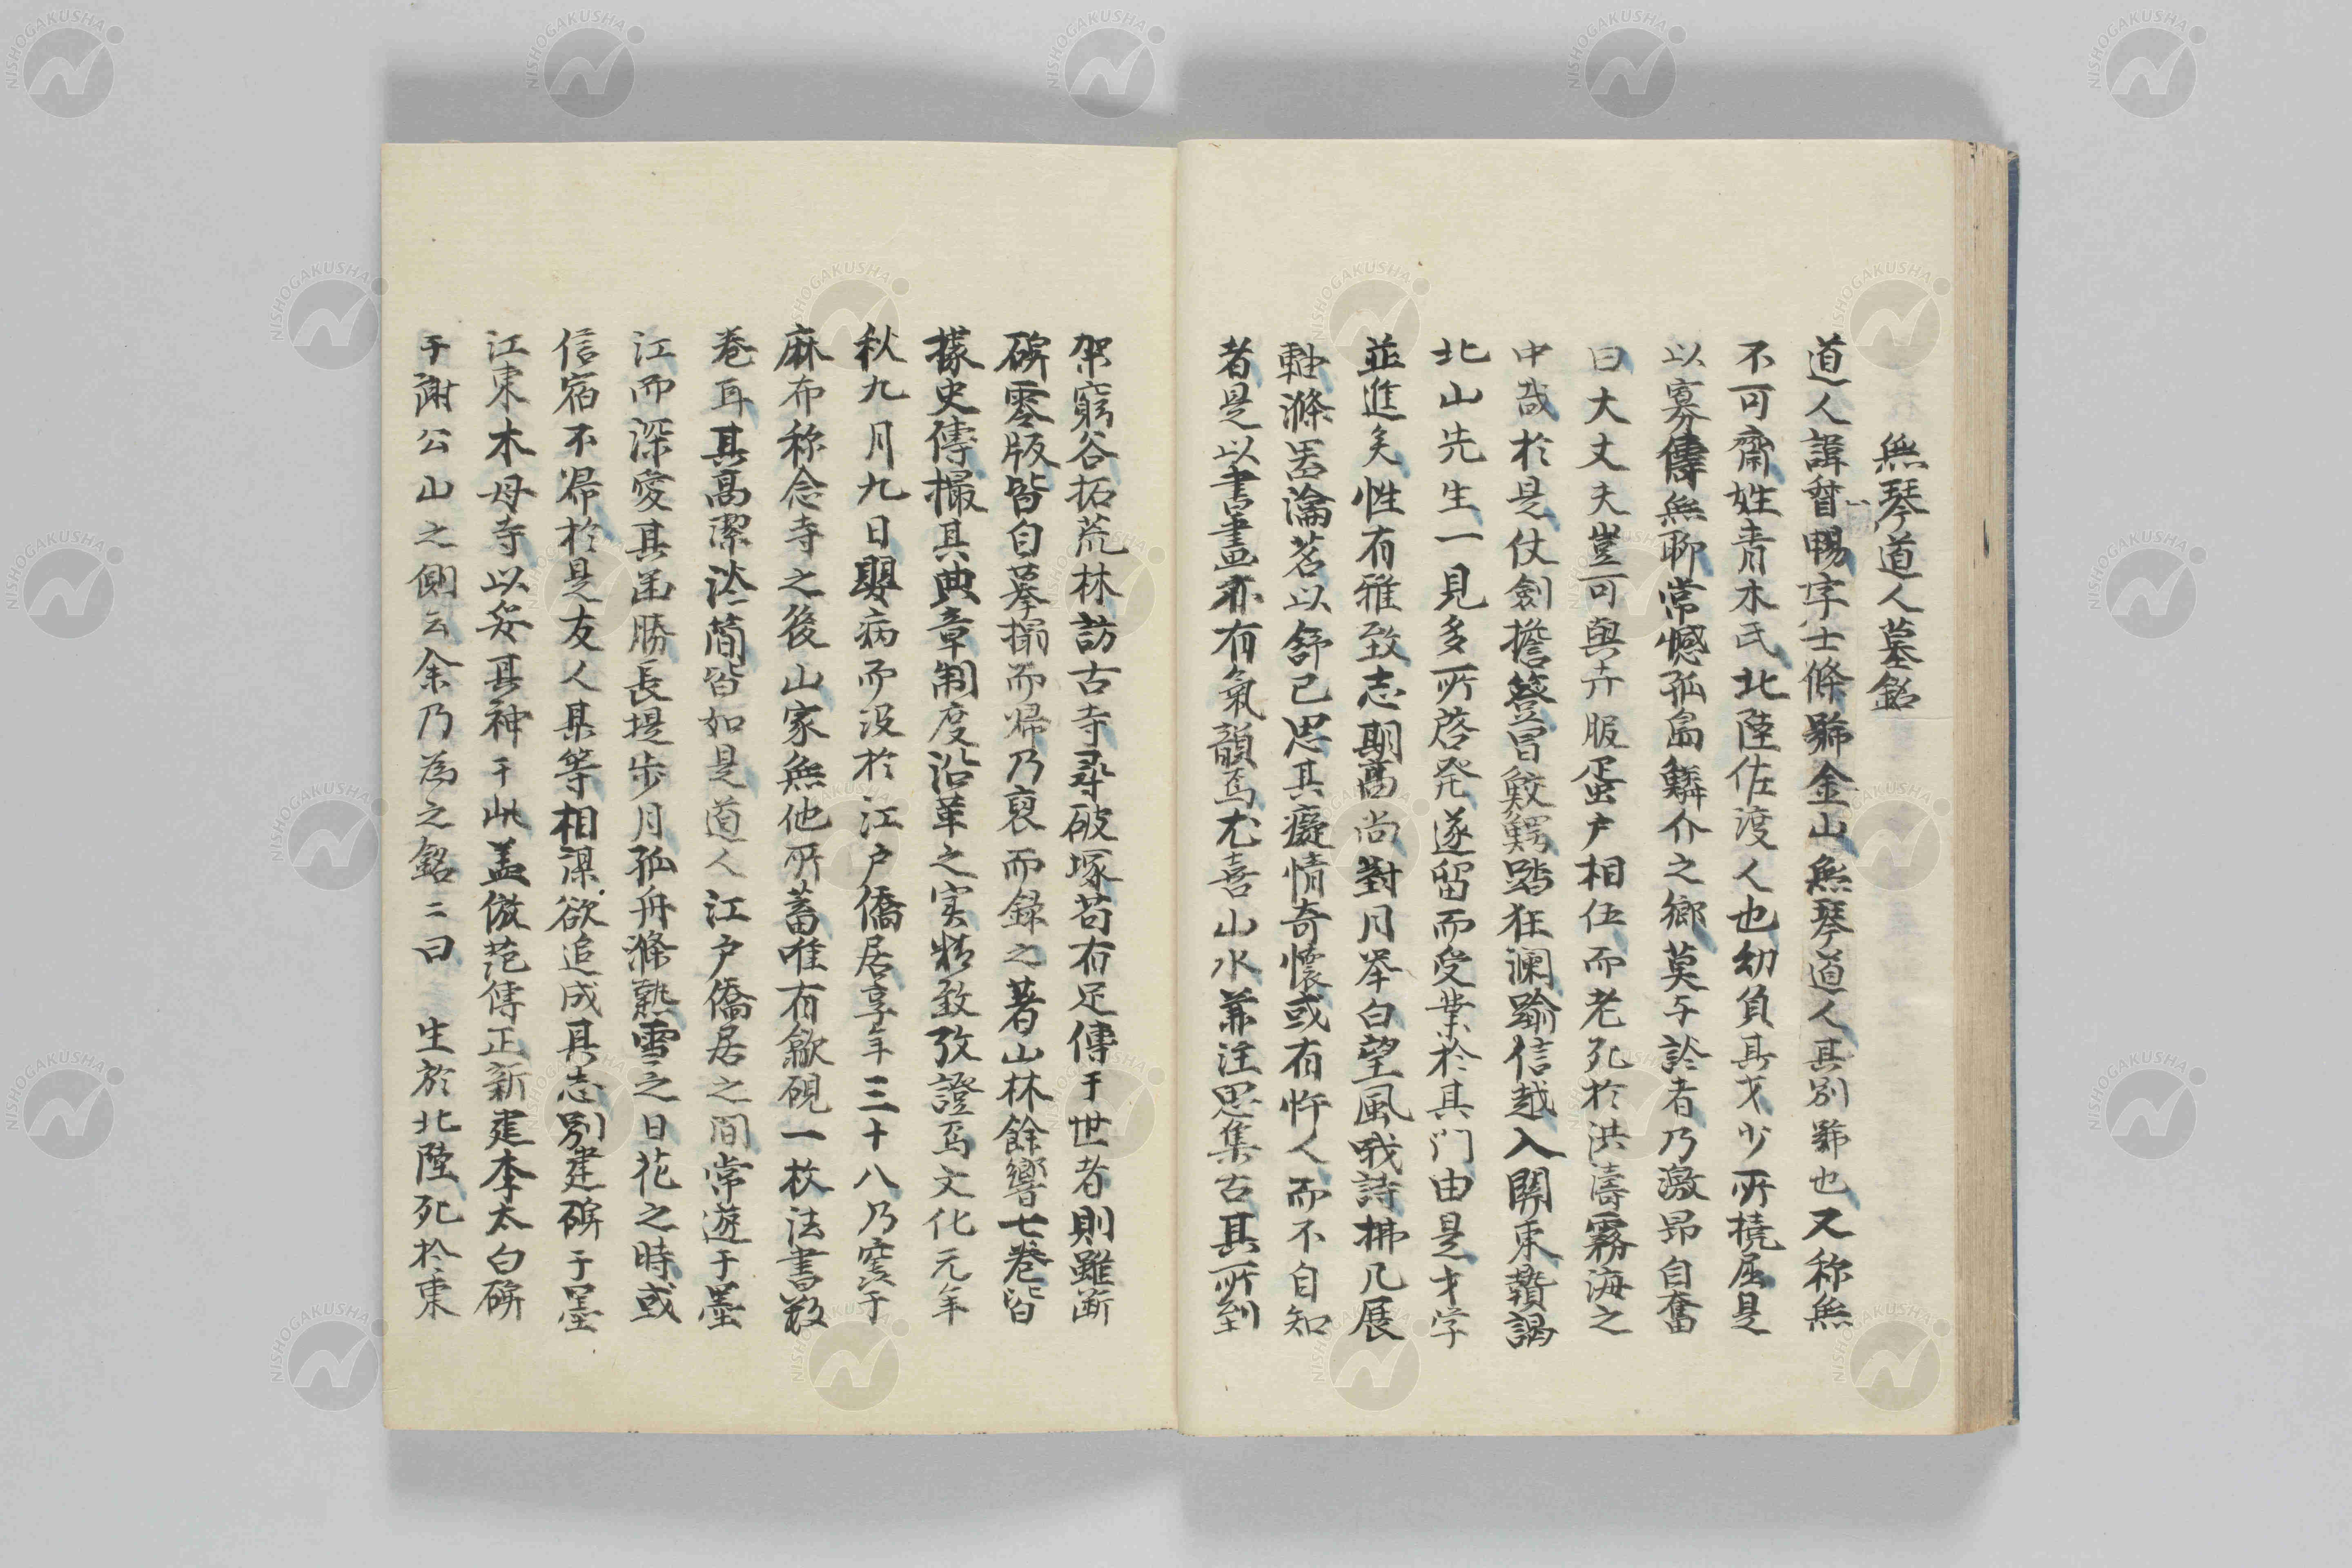 無琴道人墓銘
道人諱督暢字士條號金山無琴道人其別號也又称無
不可齋姓青木氏北陸佐渡人也幼負其才少所撓屈是
以寡儔無聊常憾孤島鱗介之鄉莫与談者乃激昂自奮
曰大丈夫豈可與卉服蛋户相伍而老死於洪濤霧海之
中哉於是仗劍擔簦冒鮫鰐踏狂瀾踰信越入關東贄謁
北山先生一見多所啓発遂留而受業於其门由是才学
並進矣性有雅致志期高尚對月举白望風哦詩拂几展
軸滌罢瀹茗以舒己思其癡情奇懷或有忤人而不自知
者是以書畫亦有氣韻焉尤喜山水兼注思集古其所到
架窮谷拓荒林訪古寺尋破塚苟有足傳于世者則雖断
碑零版皆自摹搨而帰乃裒而録之著山林餘響七卷皆
據史傳撮其典章制度沿革之实精致攷證焉文化元年
秋九月九日嬰病而没於江户僑居享年三十八乃窆于
麻布称念寺之後山家無他所蓄唯有歙硯一枚法書数
卷耳其高潔泠簡皆如是道人江户僑居之間常遊于墨
江而深愛其幽勝長堤歩月孤舟滌熱雪之日花之時或
信宿不帰於是友人某等相謀欲追成其志別建碑于墨
江東木母寺以妥其神于此盖倣范傳正新建李太白碑
于謝公山之側云余乃為之銘々曰 生於北陸死於東